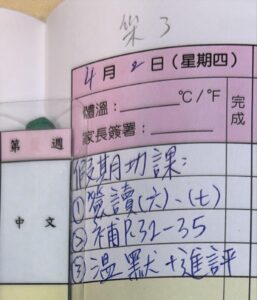 3
4月2日(星期四)
體溫：______°C/°F
家長簽署：______
完成
第 週
假期功課：
中文
①簽讀(六)、(七)
②補P.32-35
③溫默+進評